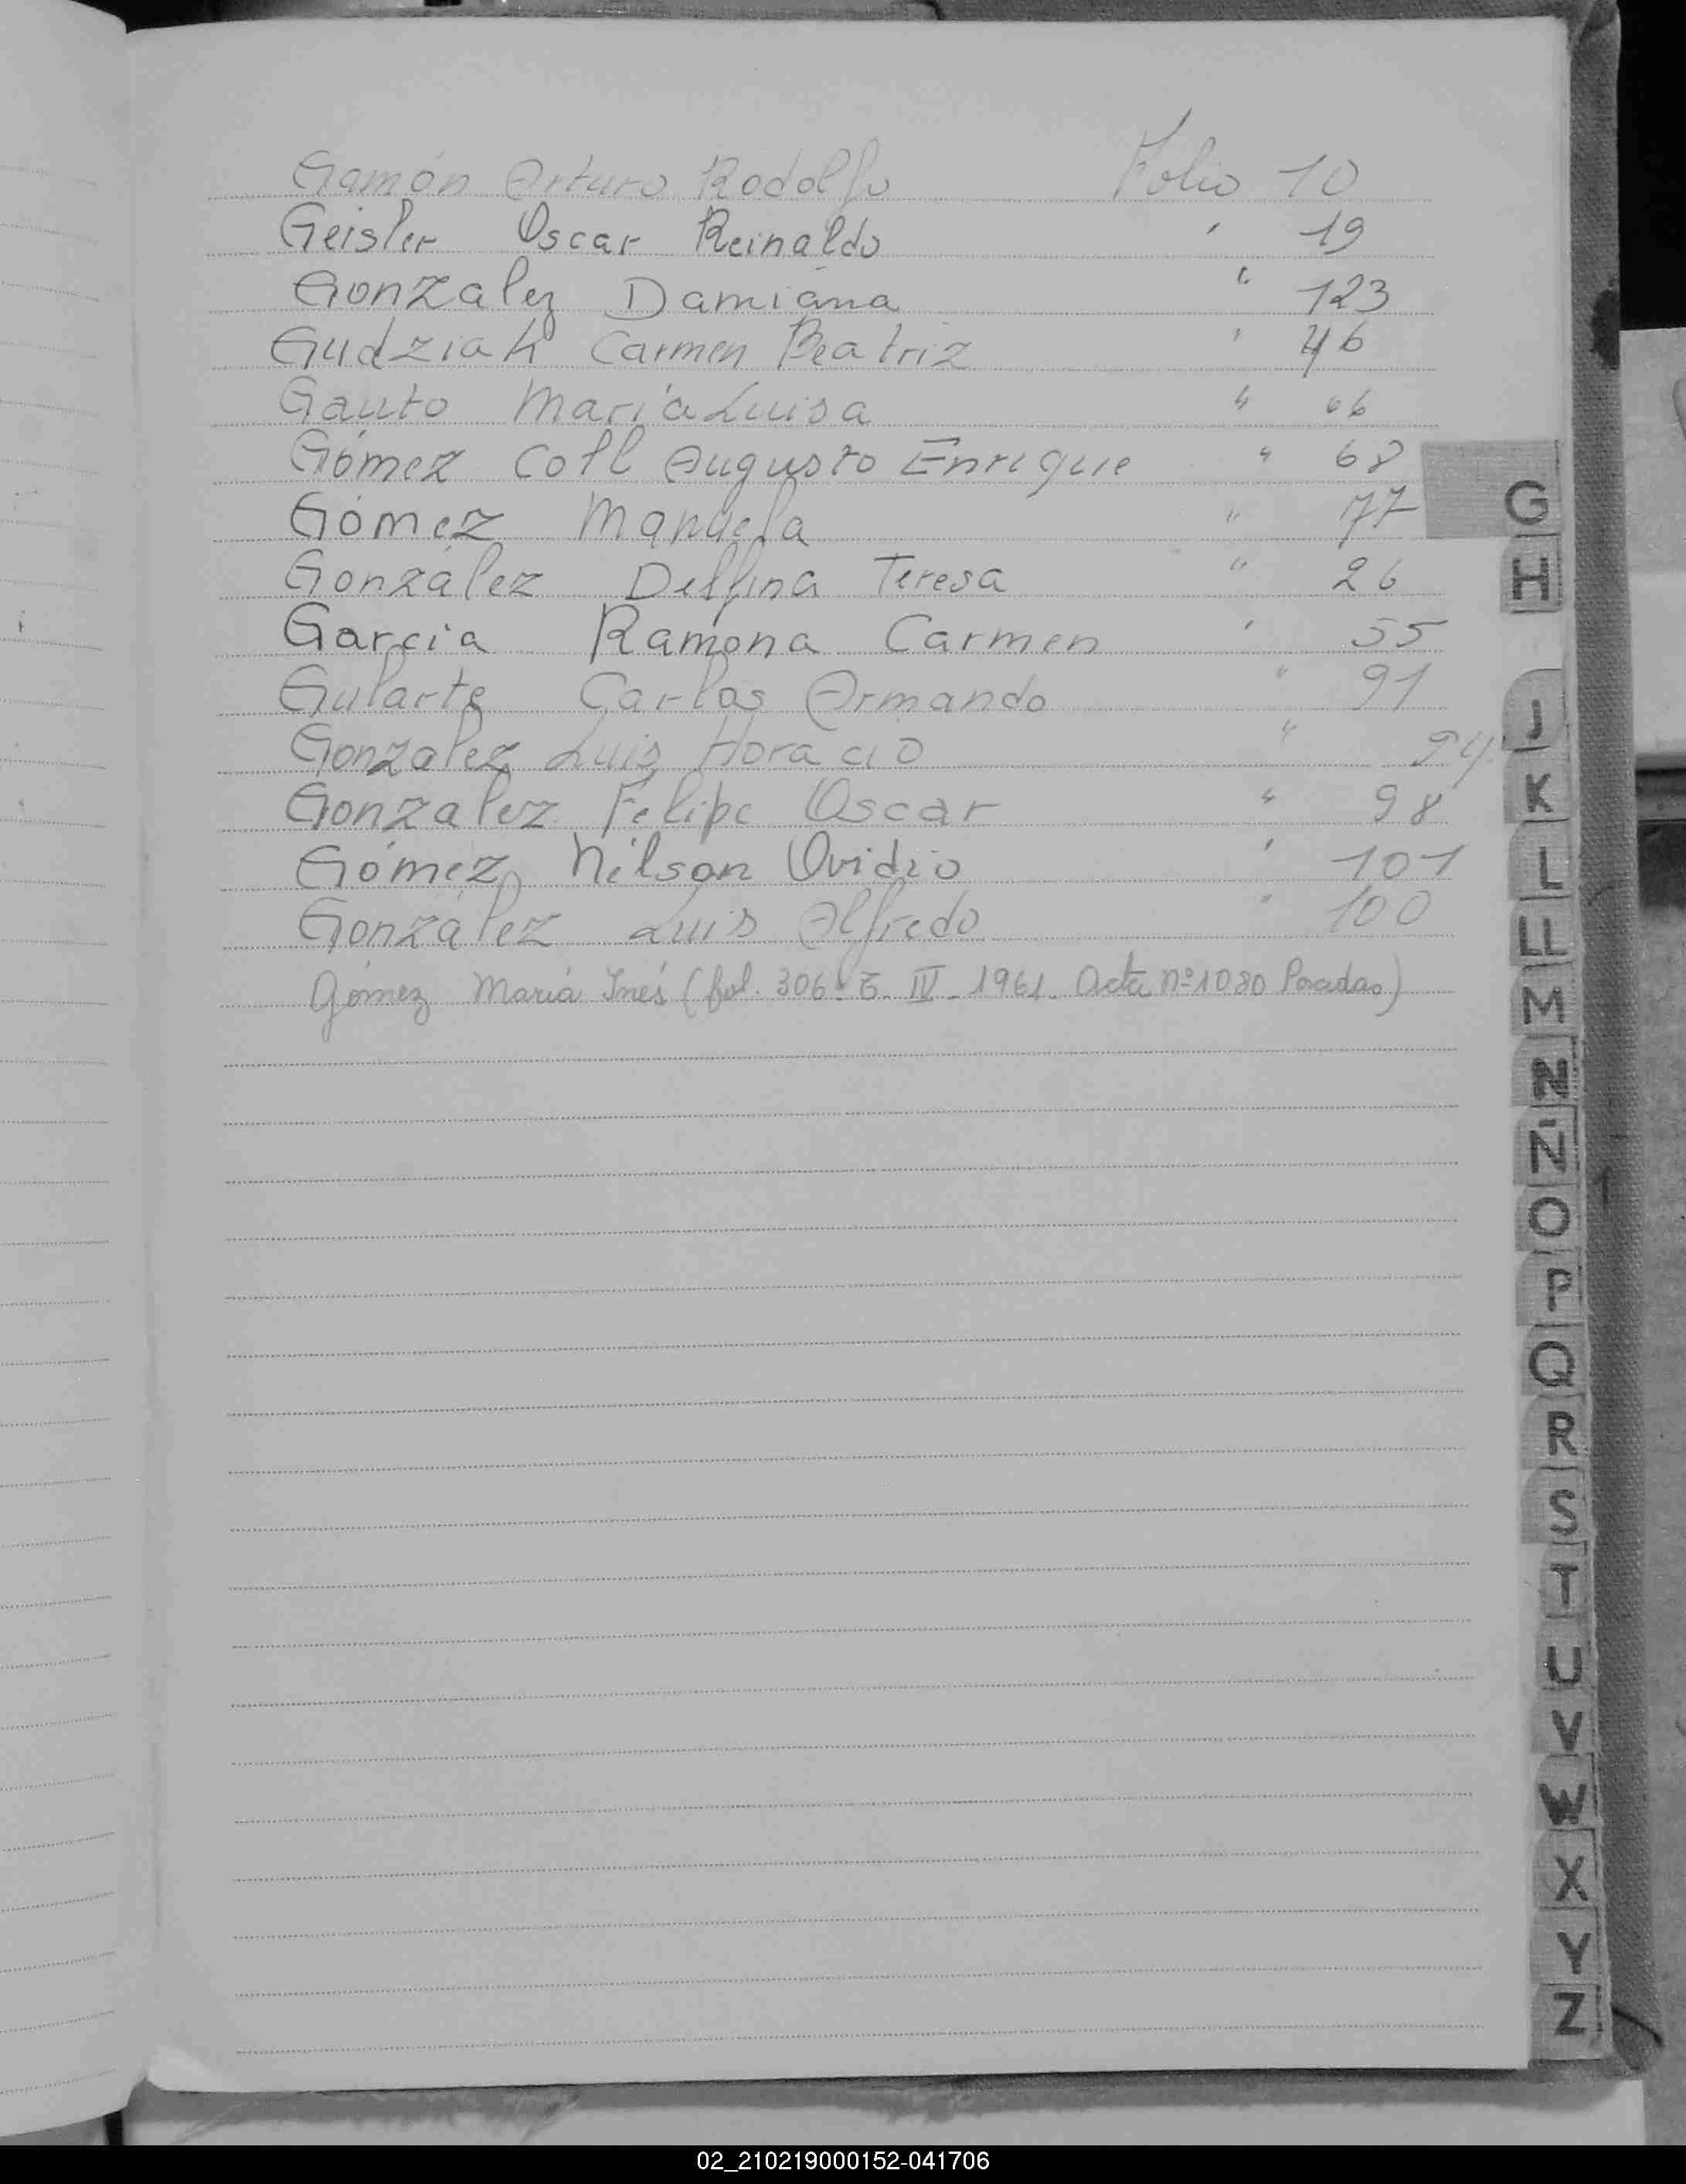 Gamón Arturo Rodolfo Folio 10
Geisler Oscar Reinaldo " 19
Gonzalez Damiana " 123
Gudziak Carmen Beatriz " 46
Gauto María Luisa " 66
Gómez Coll Augusto Enrique " 68
Gómez Manuela " 77
González Delfina Teresa " 26
Garcia Ramona Carmen " 55
Gularte Carlos Armando " 91
Gonzalez Luis Horacio " 94
Gonzalez Felipe Oscar " 98
Gómez Nilson Ovidio " 101
González Luis Alfredo " 100
Gómez María Inés (fol. 306- T. IV- 1961- Acta nº 1080 Posadas)
G
H
J
K
L
LL
M
N
Ñ
O
P
Q
R
S
T
U
V
W
X
Y
Z
02_210219000152-041706